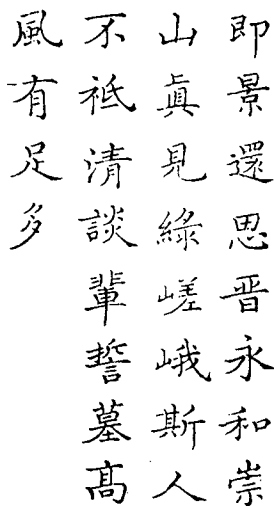 即景還思晋永和崇
山眞見綠嵯峨斯人
不祗清談輩誓墓高
風有足多